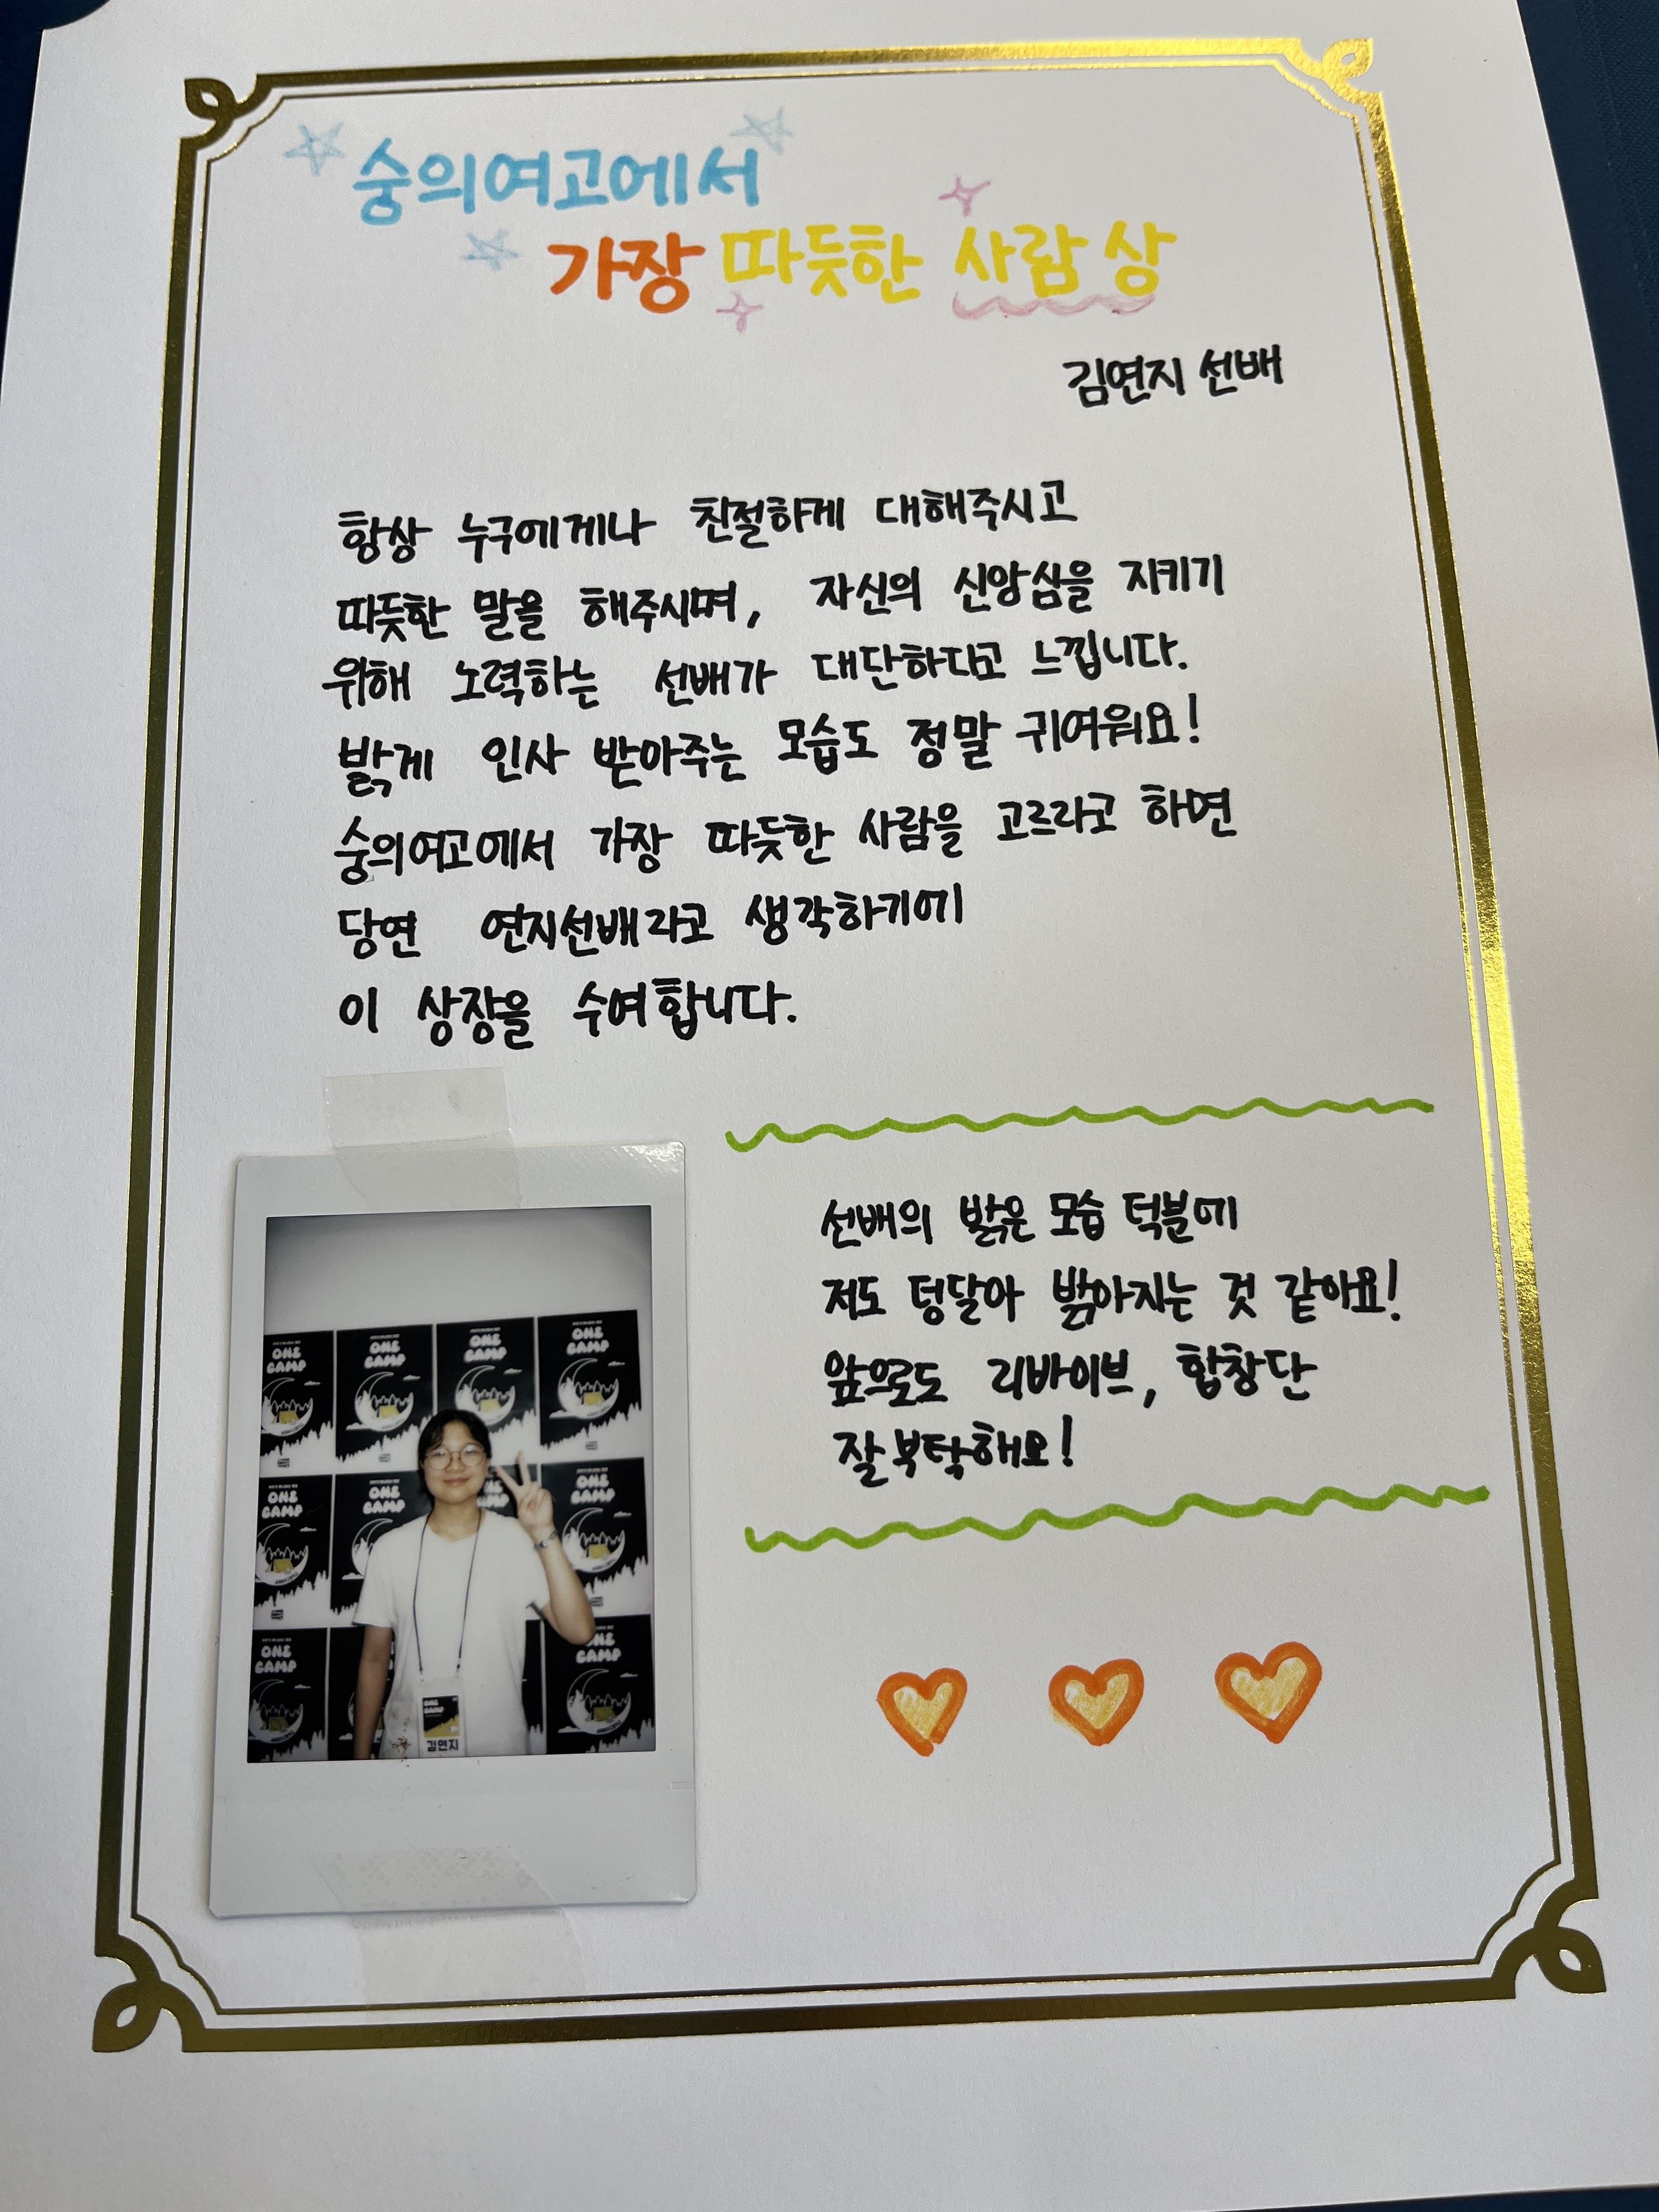 숭의여고에서
가장 따듯한 사람 상
김연지 선배
항상 누구에게나 친절하게 대해주시고
따듯한 말을 해주시며, 자신의 신앙심을 지키기
위해 노력하는 선배가 대단하다고 느낍니다.
밝게 인사 받아주는 모습도 정말 귀여워요!
숭의여고에서 가장 따듯한 사람을 고르라고 하면
당연 연지선배라고 생각하기에
이 상장을 수여합니다.
선배의 밝은 모습 덕분에
저도 덩달아 밝아지는 것 같아요!
앞으로도 리바이브, 합창단
잘 부탁해요!
ONE CAMP
ONE CAMP
ONE CAMP
ONE CAMP
ONE CAMP
ONE CAMP
ONE CAMP
ONE CAMP
CAMP
ONE CAMP
김연지